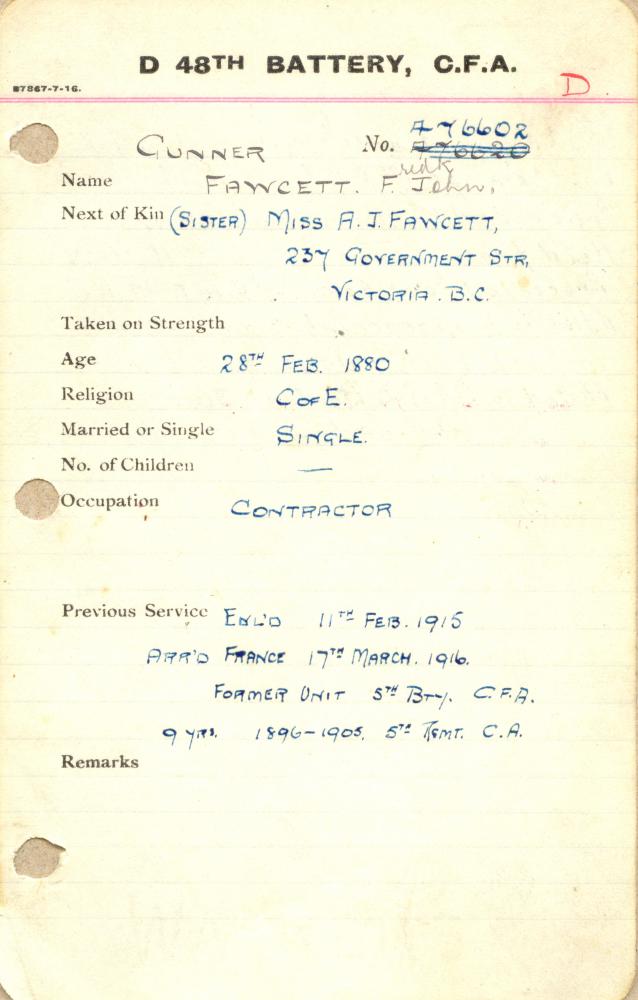 D 48TH BATTERY, C.F.A.
B7867-7-16.
D.
GUNNER No. A76602
A76620
Name FAWCETT. F. John.
Next of Kin (SISTER) MISS A. J. FAWCETT,
237 GOVERNMENT STR,
VICTORIA. B.C.
Taken on Strength
Age 28TH FEB. 1880
Religion C OF E.
Married or Single SINGLE.
No. of Children —
Occupation CONTRACTOR
Previous Service ENL'D 11TH FEB. 1915
ARR'D FRANCE 17TH MARCH. 1916.
FORMER UNIT 5TH BTY. C.F.A.
9 YRS. 1896-1905. 5TH RGMT. C.A.
Remarks